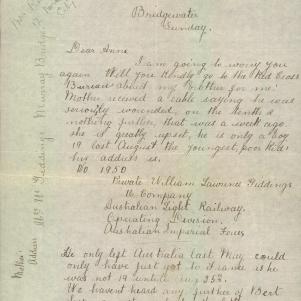 Bridgewater
Sunday.
Dear Anne
I am going to worry you
again Will you kindly go to the Red Cross
Bureau about my brother for me.
Mother received a cable saying he was
seriously wounded, on the tenth &
nothing further, that was a week ago.
she is greatly upset, he is only a boy
19 last August the youngest, poor kid
his address is.
No 1950
Private William Lawrence Giddings
Company
Australian Light Railway.
Operating Division.
Australian Imperial Forces
He only left Australia last May could
only have just got to France as he
was not 19 until Aug
We havent heard any further of Bert
Mother's
Address
Mrs Giddings
Murray Bridge